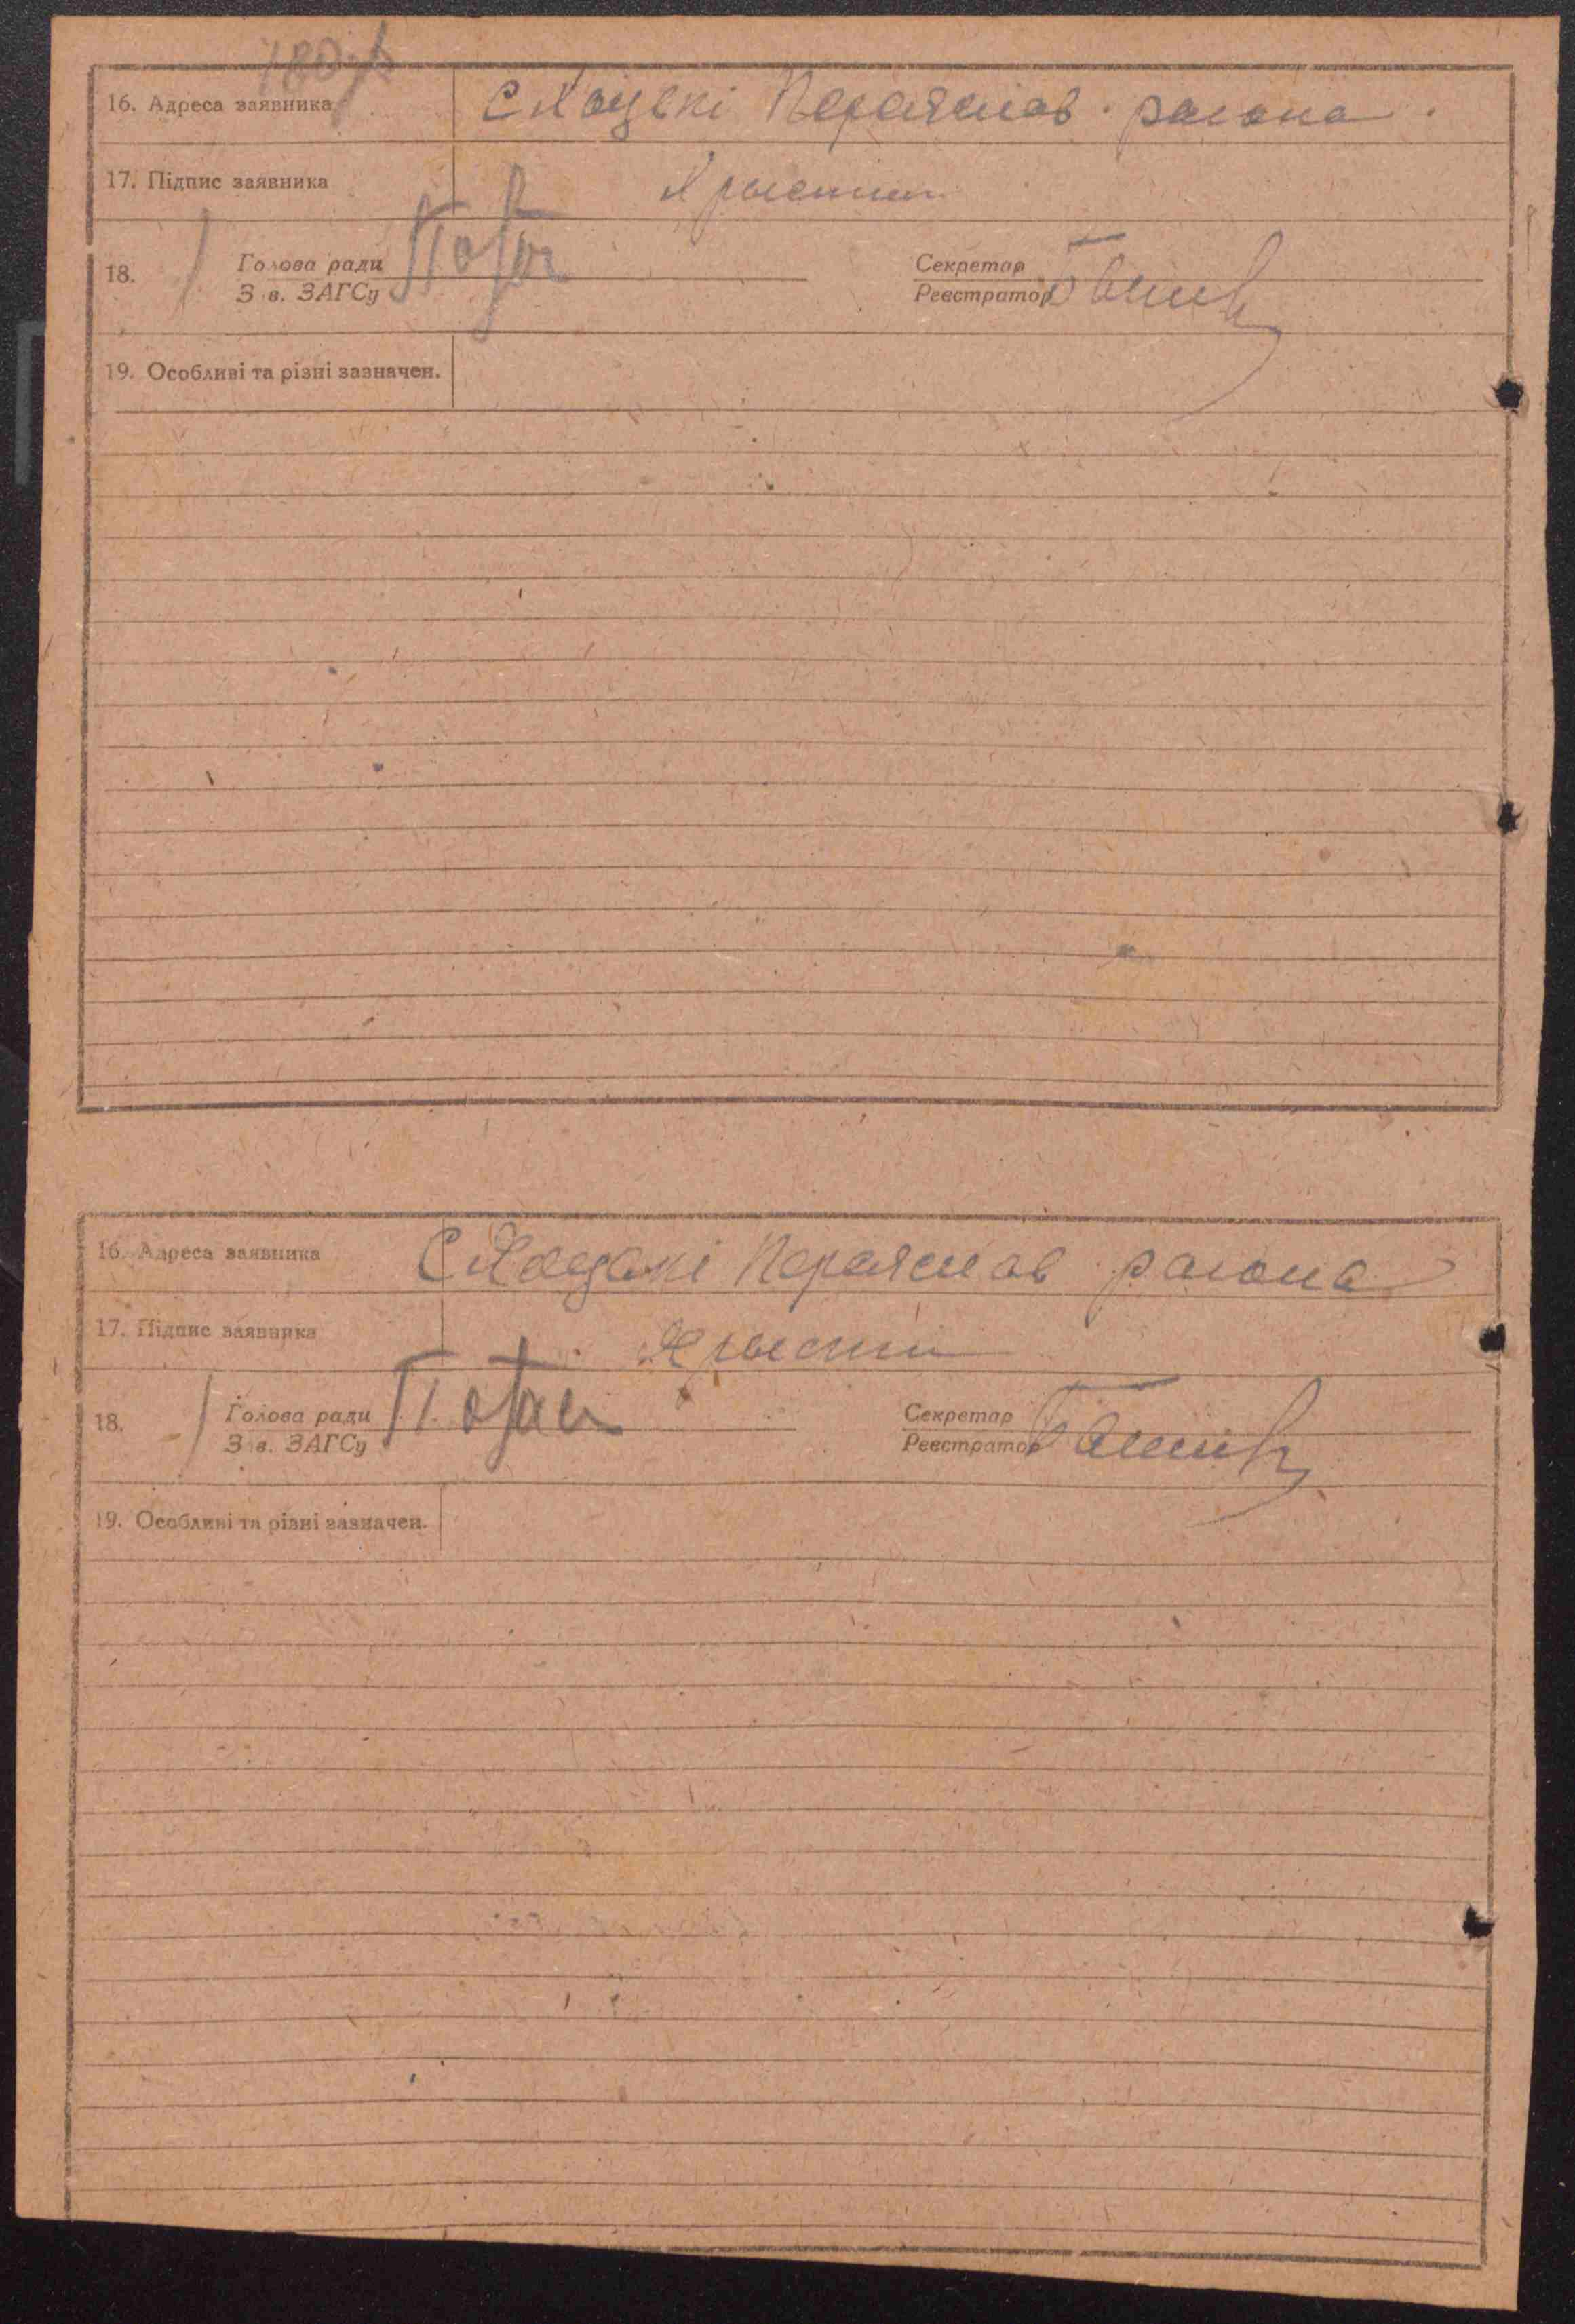 16. Адреса заявника С Хоцькі Переяслав. района.
17. Підпис заявника
18. Голова ради Секретар
Зав. ЗАГСу Реєстратор
19. Особливі та різні зазначен.
16. Адреса заявника С Хоцькі Переяслав района
17. Підпис заявника
18. Голова ради Секретар
Зав. ЗАГСу Реєстратор
19. Особливі та різні зазначен.